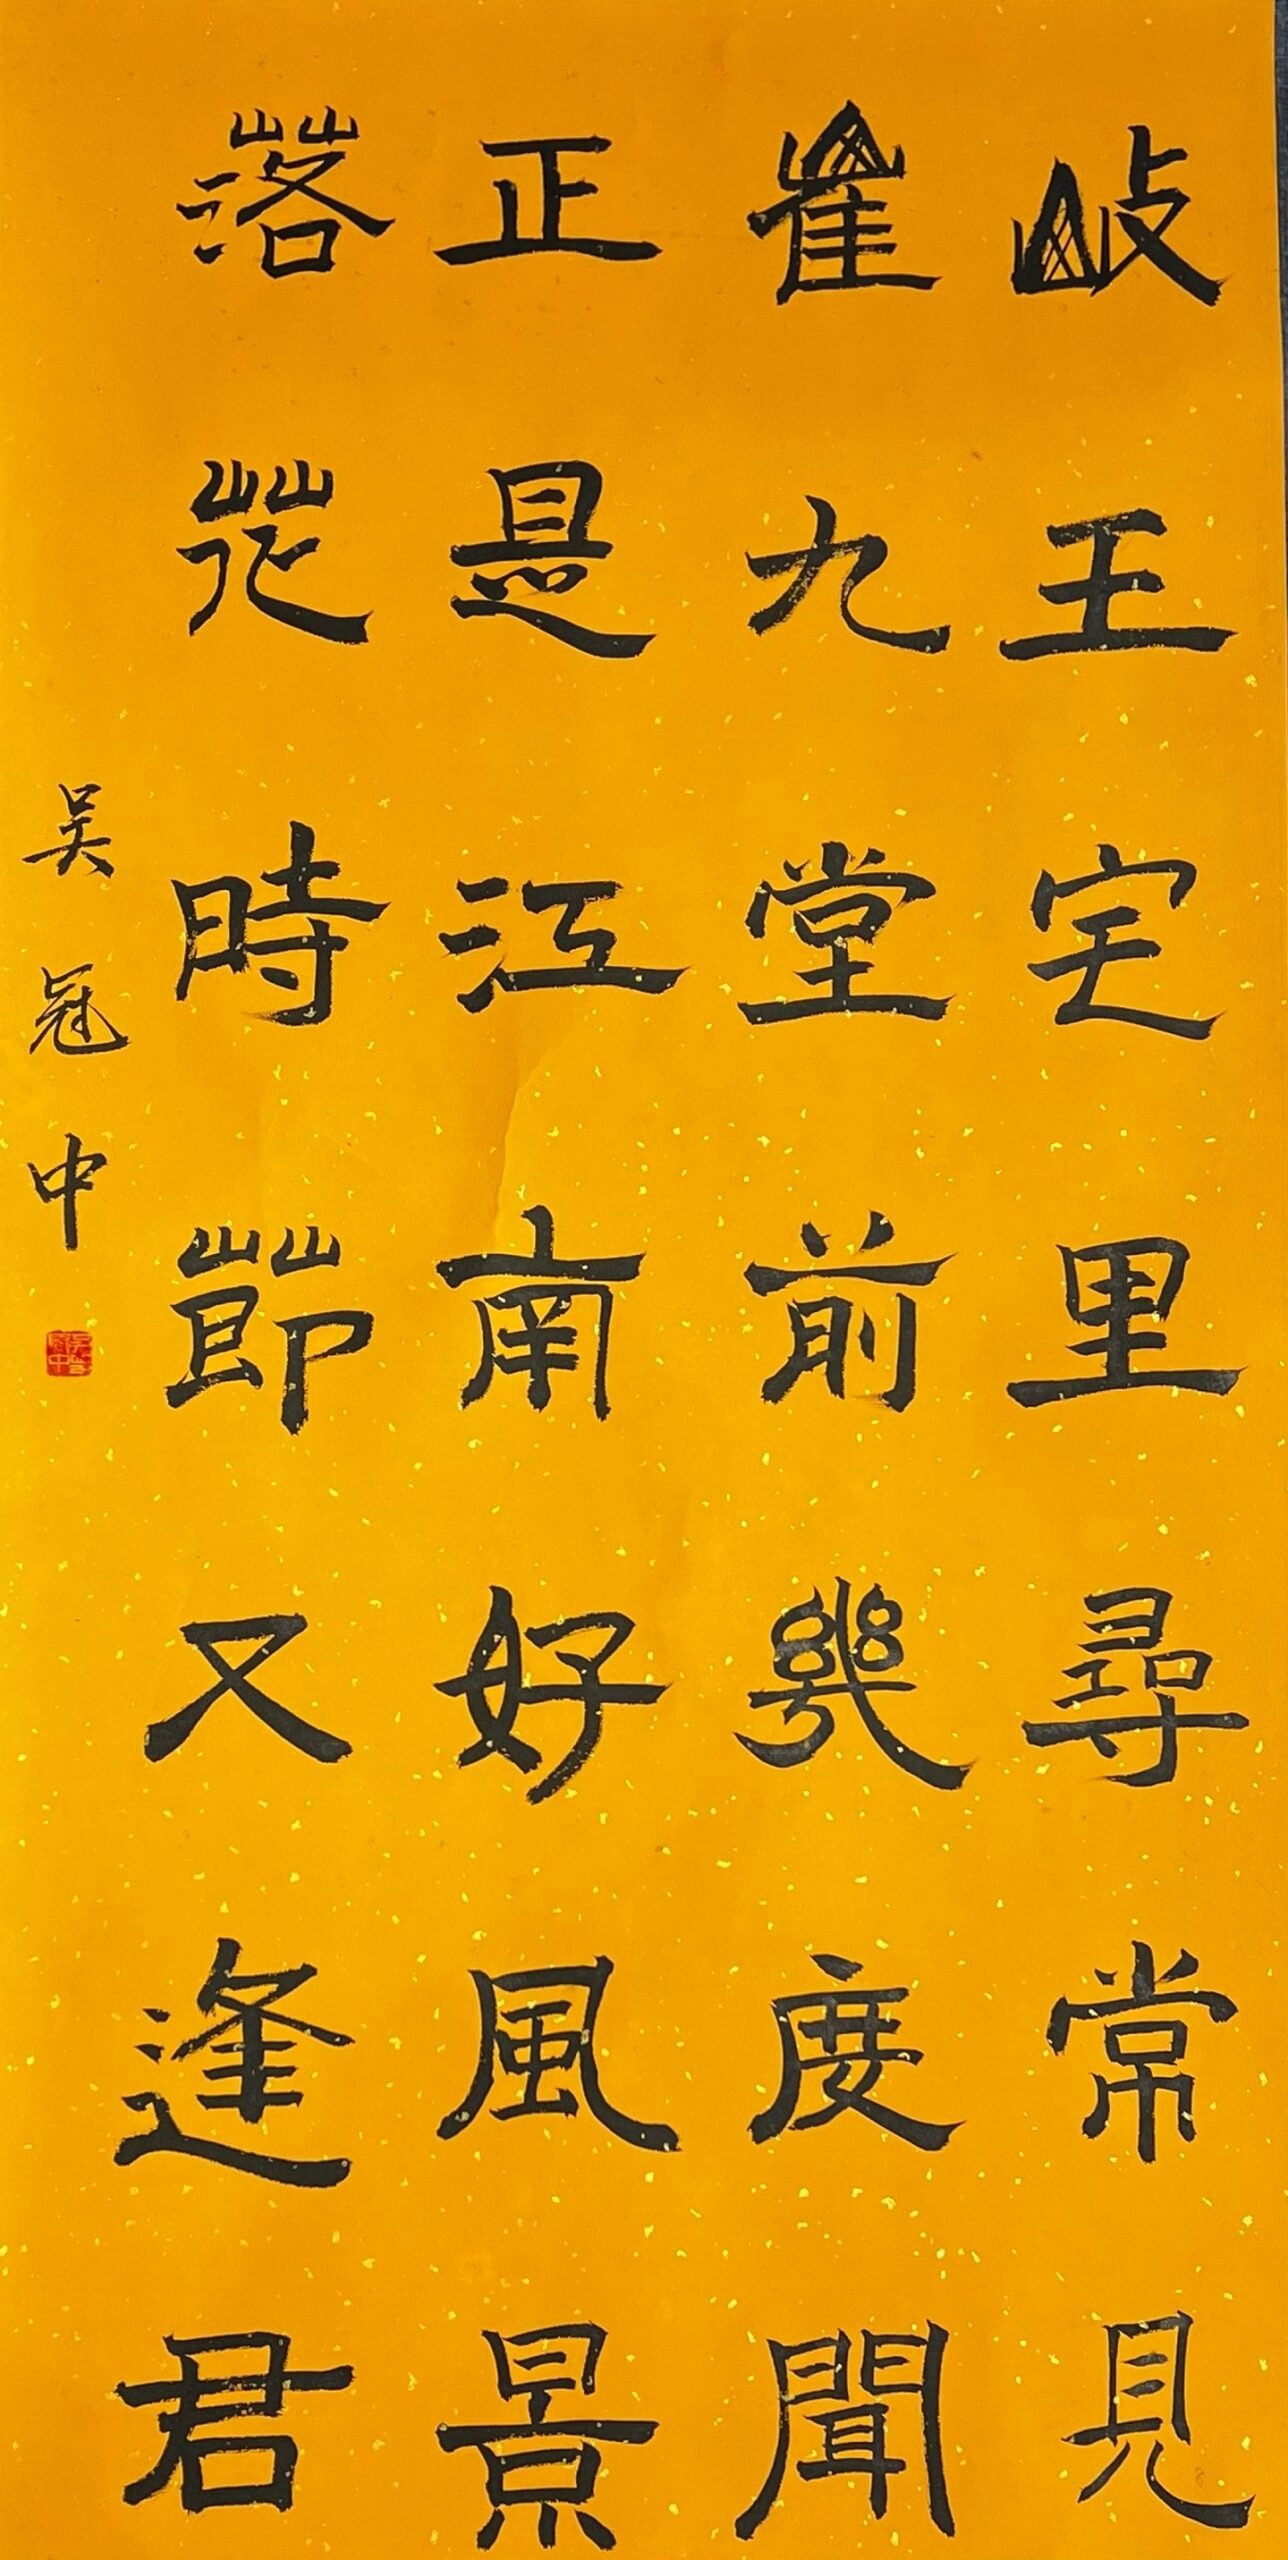 岐王宅里尋常見
崔九堂前幾度聞
正是江南好風景
落花時節又逢君
吳冠中